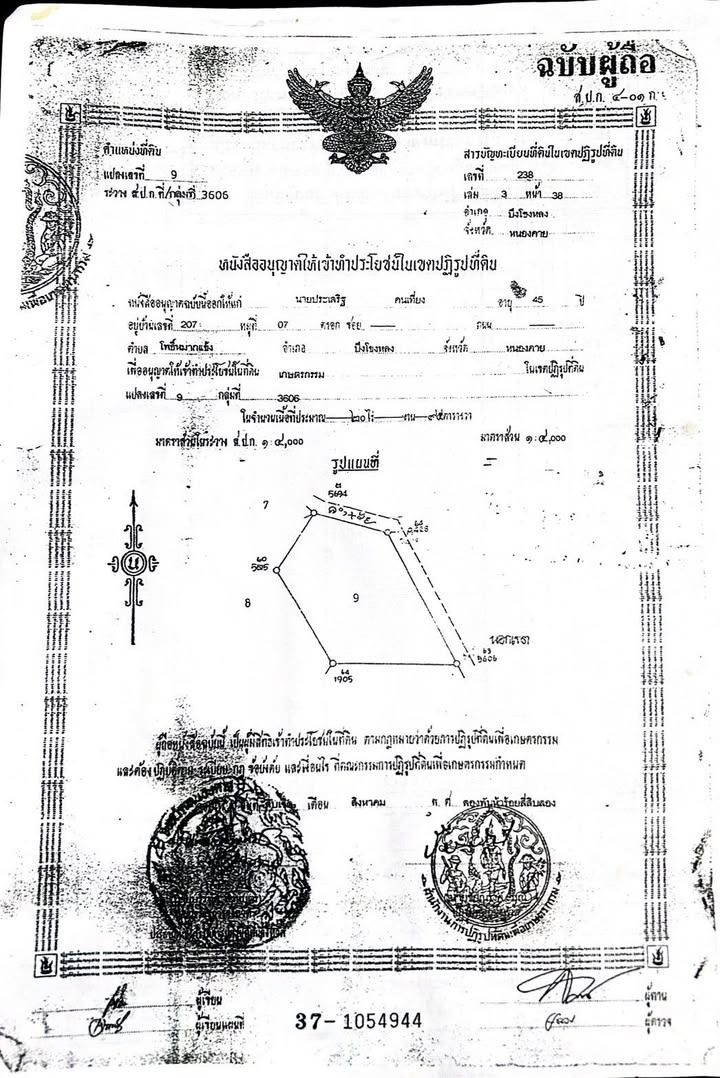 ฉบับผู้ถือ
ส.ป.ก. ๔-๐๑ ก
ตำแหน่งที่ดิน
แปลงเลขที่ 9
ระวาง ส.ป.ก.ที่/กลุ่มที่ 3606
สารบัญทะเบียนที่ดินในเขตปฏิรูปที่ดิน
เลขที่ 238
เล่ม 3 หน้า 38
อำเภอ บึงโขงหลง
จังหวัด หนองคาย
หนังสืออนุญาตให้เข้าทำประโยชน์ในเขตปฏิรูปที่ดิน
หนังสืออนุญาตฉบับนี้ออกให้แก่ นายประเสริฐ คนเที่ยง อายุ 45 ปี
อยู่บ้านเลขที่ 207 หมู่ที่ 07 ตรอก ซอย ถนน
ตำบล โพธิ์หมากแข้ง อำเภอ บึงโขงหลง จังหวัด หนองคาย
เพื่ออนุญาตให้เข้าทำประโยชน์ในที่ดิน เกษตรกรรม ในเขตปฏิรูปที่ดิน
แปลงเลขที่ 9 กลุ่มที่ 3606
ในจำนวนเนื้อที่ประมาณ ๒๐ ไร่ งาน ๙๕ ตารางวา
มาตราส่วนในระวาง ส.ป.ก. ๑:๔,๐๐๐ มาตราส่วน ๑:๔,๐๐๐
รูปแผนที่
7
5694
น
5615
8
9
นอกเขต
๖๓
5606
๖๔
1905
ผู้ถือหนังสือฉบับนี้ เป็นผู้มีสิทธิเข้าทำประโยชน์ในที่ดิน ตามกฎหมายว่าด้วยการปฏิรูปที่ดินเพื่อเกษตรกรรม
และต้องปฏิบัติตาม ระเบียบ กฎ ข้อบังคับ และเงื่อนไข ที่คณะกรรมการปฏิรูปที่ดินเพื่อเกษตรกรรมกำหนด
เดือน สิงหาคม พ.ศ. สองพันห้าร้อยสี่สิบสอง
สำนักงานการปฏิรูปที่ดินเพื่อเกษตรกรรม
ผู้เขียน
ผู้เขียนแผนที่
37-1054944
ผู้ทาน
ผู้ตรวจ